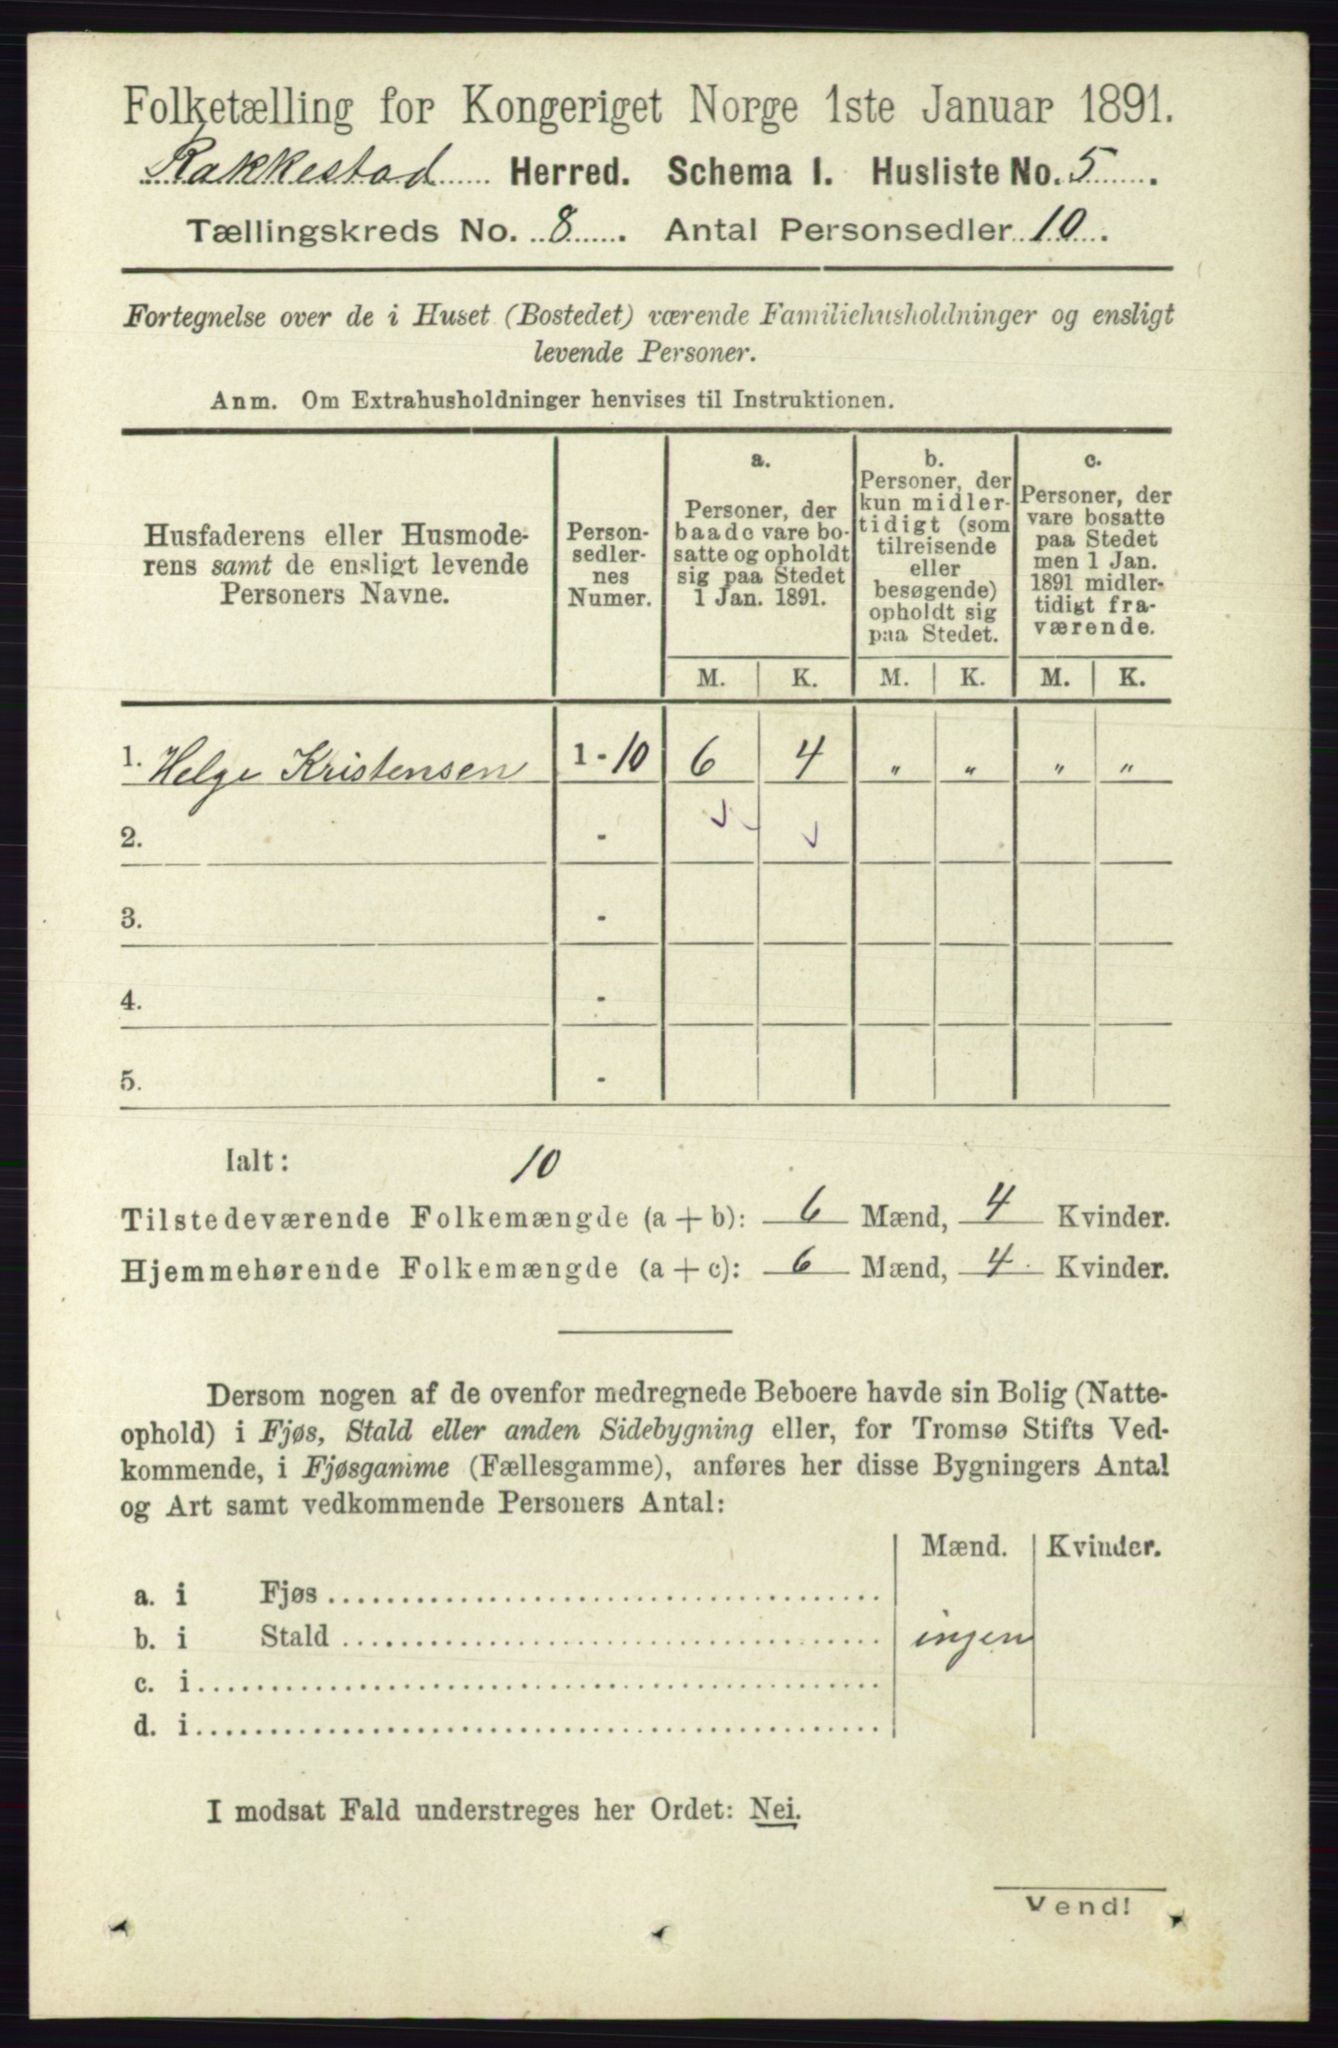 Folketælling for Kongeriget Norge 1ste Januar 1891.
Rakkestad Herred. Schema I. Husliste No. 5.
Tællingskreds No. 8. Antal Personsedler 10.
Fortegnelse over de i Huset (Bostedet) værende Familiehusholdninger og ensligt
levende Personer.
Anm. Om Extrahusholdninger henvises til Instruktionen.
Husfaderens eller Husmode-
rens samt de ensligt levende
Personers Navne.
Person-
sedler-
nes
Numer.
a.
Personer, der
baade vare bo-
satte og opholdt
sig paa Stedet
1 Jan. 1891.
b.
Personer, der
kun midler-
tidigt (som
tilreisende
eller
besøgende)
opholdt sig
paa Stedet.
c.
Personer, der
vare bosatte
paa Stedet
men 1 Jan.
1891 midler-
tidigt fra-
værende.
M. K. M. K. M. K.
1. Helge Kristensen 1-10 6 4 " " " "
2. -
3. -
4. -
5. -
Ialt: 10
Tilstedeværende Folkemængde (a + b): 6 Mænd, 4 Kvinder.
Hjemmehørende Folkemængde (a + c): 6 Mænd, 4 Kvinder.
Dersom nogen af de ovenfor medregnede Beboere havde sin Bolig (Natte-
ophold) i Fjøs, Stald eller anden Sidebygning eller, for Tromsø Stifts Ved-
kommende, i Fjøsgamme (Fællesgamme), anføres her disse Bygningers Antal
og Art samt vedkommende Personers Antal:
Mænd. Kvinder.
a. i Fjøs
b. i Stald ingen
c. i
d. i
I modsat Fald understreges her Ordet: Nei.
Vend!